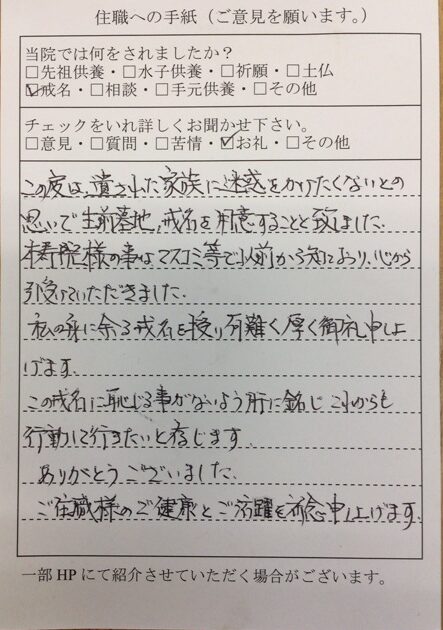 住職への手紙（ご意見を願います。）
当院では何をされましたか？
□先祖供養・□水子供養・□祈願・□土仏
☑戒名・□相談・□手元供養・□その他
チェックをいれ詳しくお聞かせ下さい。
□意見・□質問・□苦情・☑お礼・□その他
この度は、遺された家族に迷惑をかけたくないとの
思いで生前墓地、戒名を用意することと致しました。
様の事はマスコミ等で以前から知っており、心から
引受けていただきました。
私の身に余る戒名を授り有難く厚く御礼申し上
げます。
この戒名に恥じる事がないよう肝に銘じこれからも
行動して行きたいと存じます。
ありがとうございました。
ご住職様のご健康とご活躍を祈念申し上げます。
一部HPにて紹介させていただく場合がございます。